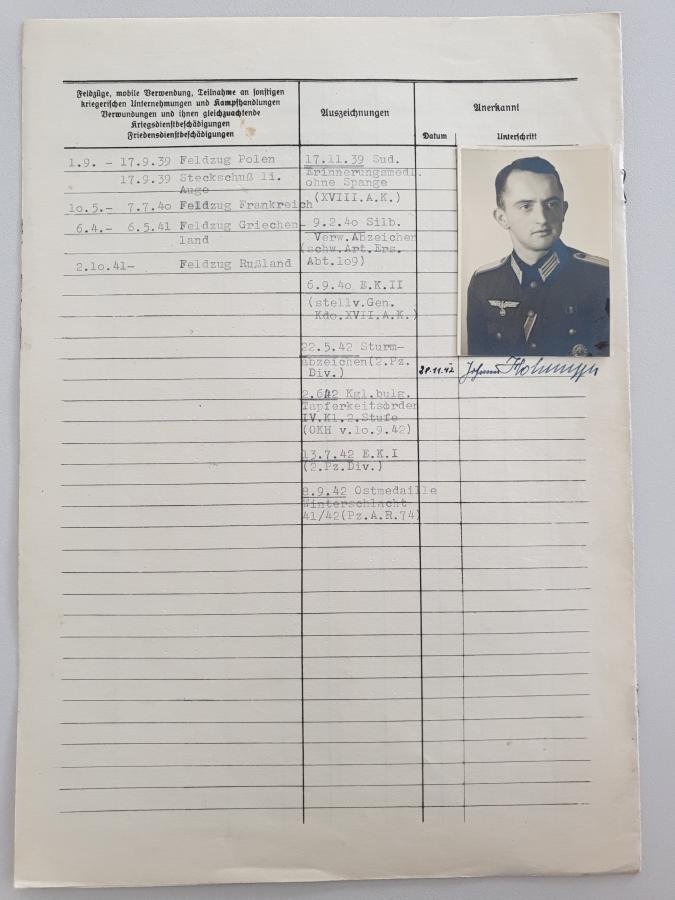 Feldzüge, mobile Verwendung, Teilnahme an sonstigen
kriegerischen Unternehmungen und Kampfhandlungen
Verwundungen und ihnen gleichzuachtende
Kriegsdienstbeschädigungen
Friedensdienstbeschädigungen
Auszeichnungen
Anerkannt
Datum Unterschrift
1.9. - 17.9.39 Feldzug Polen
17.9.39 Steckschuß li.
Auge
1o.5.- 7.7.4o Feldzug Frankreich
6.4.- 6.5.41 Feldzug Griechen-
land
2.1o.41- Feldzug Rußland
17.11.39 Sud.
Erinnerungsmedl.
ohne Spange
(XVIII.A.K.)
9.2.4o Silb.
Verw.Abzeichen
(schw.Art.Ers.
Abt.1o9)
6.9.4o E.K.II
(stellv.Gen.
Kdo.XVII.A.K.)
22.5.42 Sturm-
abzeichen(2.Pz.
Div.)
2.6.42 Kgl.bulg.
Tapferkeitsorden
IV.Kl.2.Stufe
(OKH v.1o.9.42)
13.7.42 E.K.I
(2.Pz.Div.)
8.9.42 Ostmedaille
Winterschlacht
41/42(Pz.A.R.74)
Johann